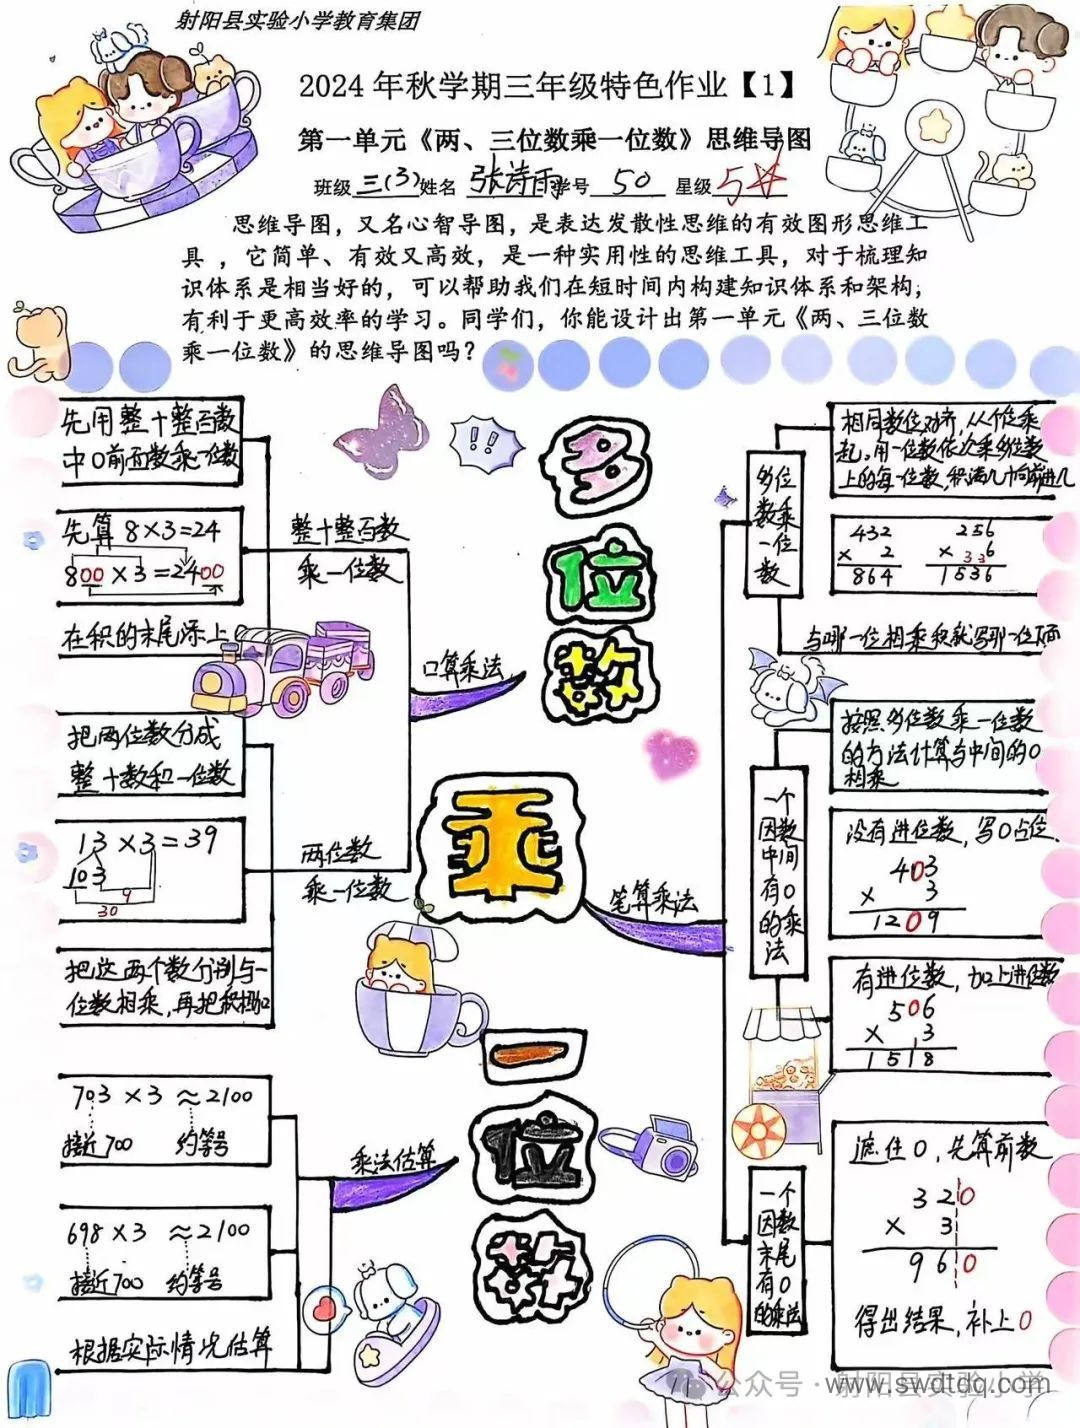 射阳县实验小学教育集团
2024年秋学期三年级特色作业【1】
第一单元《两、三位数乘一位数》思维导图
班级三(3)姓名 张诗雨学号 50 星级 5☆
思维导图，又名心智导图，是表达发散性思维的有效图形思维工
具 ，它简单、有效又高效，是一种实用性的思维工具，对于梳理知
识体系是相当好的，可以帮助我们在短时间内构建知识体系和架构；
有利于更高效率的学习。同学们，你能设计出第一单元《两、三位数
乘一位数》的思维导图吗？
多
位
数
乘
一
位
数
口算乘法
整十整百数
乘一位数
先用整十整百数
中0前面数乘一位数
先算 8×3=24
800×3=2400
在积的末尾添上
两位数
乘一位数
把两位数分成
整十数和一位数
13×3=39
10 3
9
30
把这两个数分别与一
位数相乘,再把积相加
乘法估算
703×3≈2100
接近700 约等号
698×3≈2100
接近700 约等号
根据实际情况估算
笔算乘法
多位
数乘
一位
数
相同数位对齐,从个位乘
起。用一位数依次乘多位数
上的每一位数,积满几十向前进几
432
× 2
864
256
× 336
1536
与哪一位相乘积就写哪一位下面
一个
因数
中间
有0
的乘
法
按照多位数乘一位数
的方法计算与中间的0
相乘
没有进位数,写0占位.
403
× 3
1209
有进位数,加上进位数
506
× 13
1518
一个
因数
末尾
有0
的乘法
遮住0,先算前数
320
× 3
960
得出结果,补上0
!!
公众号 · 射阳县实验小学
www.swdtdq.com